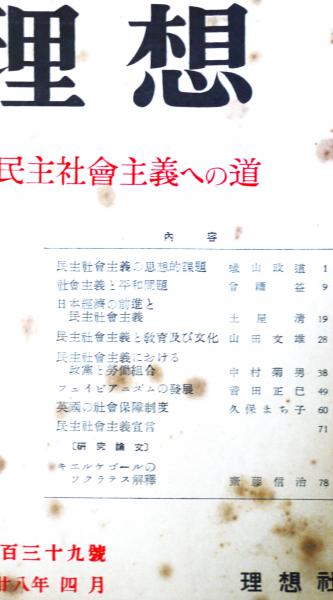 理想
民主社會主義への道
內容
民主社會主義の思想的課題 蠟山政道 1
社會主義と平和問題 曾禰益 9
日本經濟の前進と
民主社會主義 土屋清 19
民主社會主義と敎育及び文化 山田文雄 28
民主社會主義における
政黨と勞働組合 中村菊男 38
フェイビアニズムの發展 音田正巳 49
英國の社會保障制度 久保まち子 60
民主社會主義宣言 71
〔硏究論文〕
キエルケゴールの
ソクラテス解釋 齋藤信治 78
百三十九號
廿八年四月
理想社